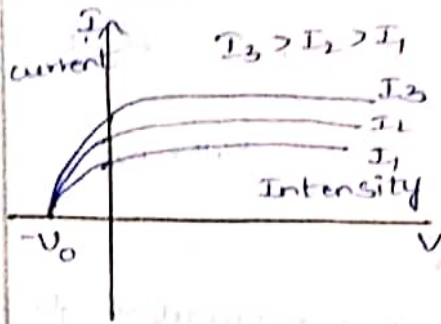 I
current
I3 > I2 > I1
I3
I2
I1
Intensity
-V0
V